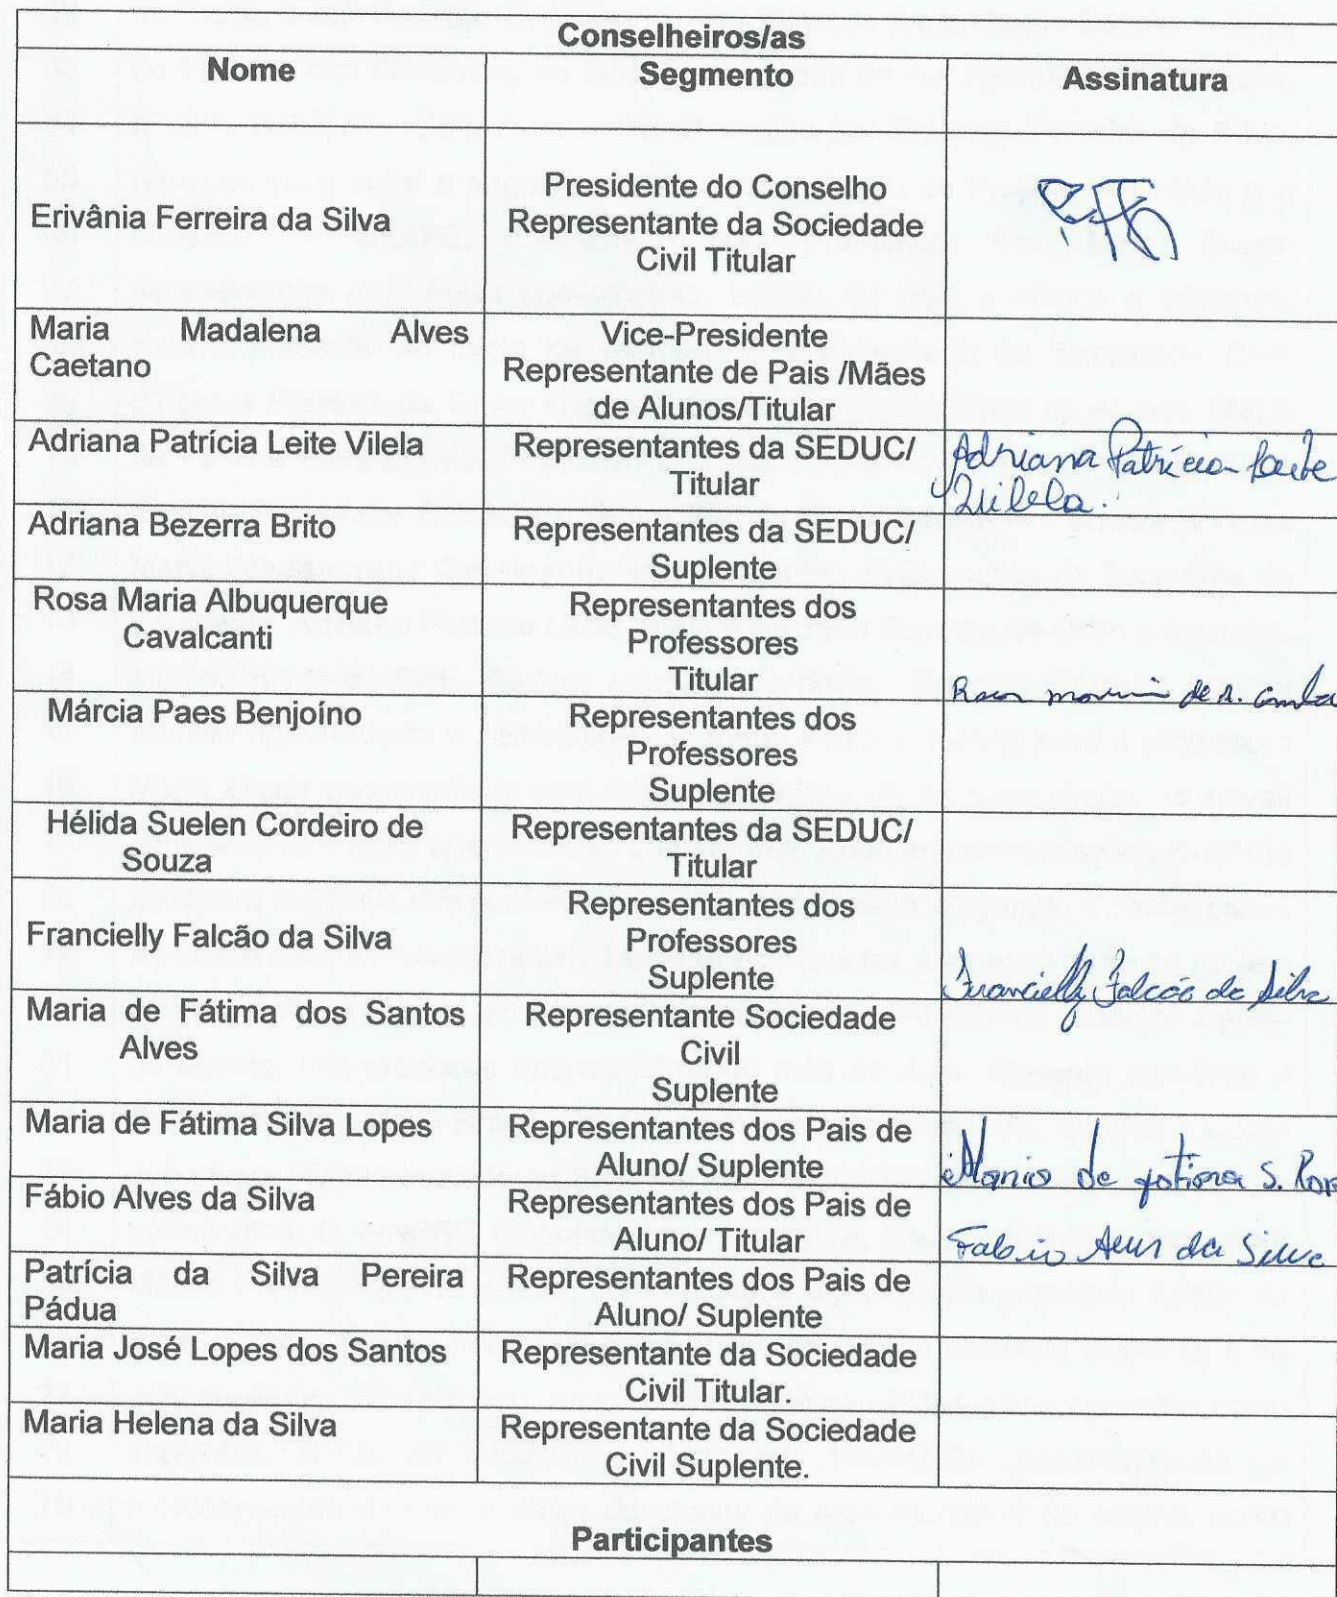 Conselheiros/as
Nome Segmento Assinatura
Erivânia Ferreira da Silva
Presidente do Conselho
Representante da Sociedade
Civil Titular
Maria Madalena Alves
Caetano
Vice-Presidente
Representante de Pais /Mães
de Alunos/Titular
Adriana Patrícia Leite Vilela
Representantes da SEDUC/
Titular
Adriana Patrícia Leite
Vilela.
Adriana Bezerra Brito
Representantes da SEDUC/
Suplente
Rosa Maria Albuquerque
Cavalcanti
Representantes dos
Professores
Titular
Rosa maria de A.
Márcia Paes Benjoíno
Representantes dos
Professores
Suplente
Hélida Suelen Cordeiro de
Souza
Representantes da SEDUC/
Titular
Francielly Falcão da Silva
Representantes dos
Professores
Suplente
Francielly Falcão da Silva
Maria de Fátima dos Santos
Alves
Representante Sociedade
Civil
Suplente
Maria de Fátima Silva Lopes
Representantes dos Pais de
Aluno/ Suplente
Maria de fatima S.
Fábio Alves da Silva
Representantes dos Pais de
Aluno/ Titular
Fabio Alves da Silva
Patrícia da Silva Pereira
Pádua
Representantes dos Pais de
Aluno/ Suplente
Maria José Lopes dos Santos
Representante da Sociedade
Civil Titular.
Maria Helena da Silva
Representante da Sociedade
Civil Suplente.
Participantes